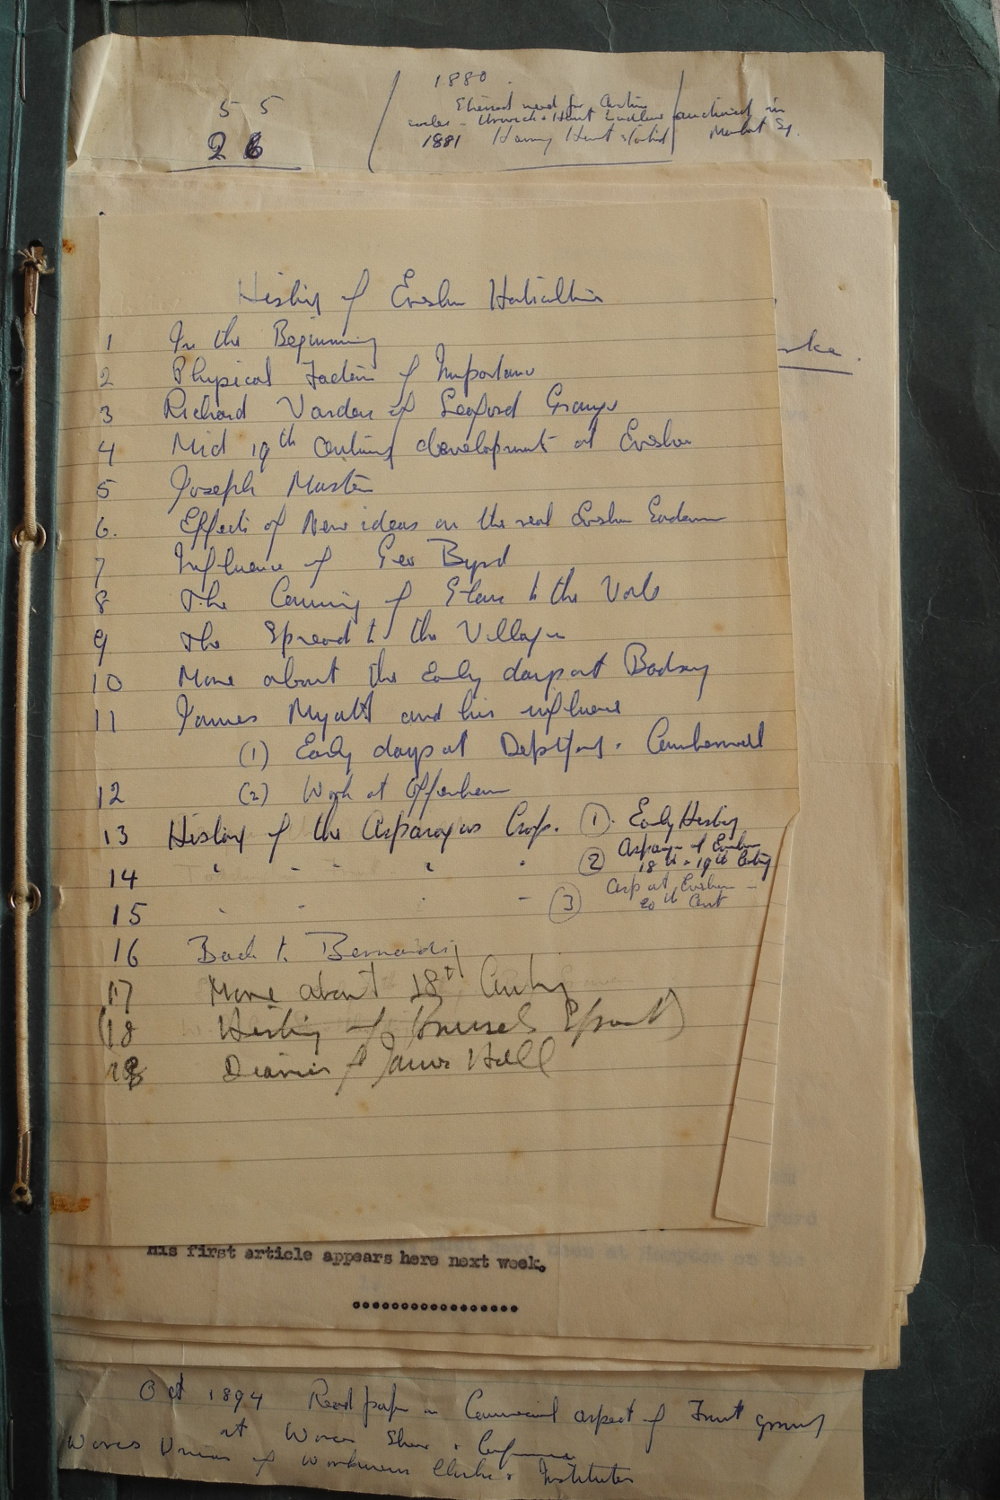 5 5
26
1880.
need for Auction
sales - Hunt auctioned in
1881 Harry Hunt started Market Sq.
History of Evesham Horticulture
1 In the Beginning
2 Physical Factors of Importance
3 Richard Varden of Seaford Grange
4 Mid 19th century development at Evesham
5 Joseph Masters
6. Effects of New ideas on the real Evesham Gardeners
7 Influence of Geo Byrd
8 The Coming of Glass to the Vale
9 The Spread to the Villages
10 More about the Early days at Badsey
11 James Myatt and his influence
(1) Early days at Deptford. Camberwell
12 (2) Work at Offenham
13 History of the Asparagus Crop. (1). Early History
14 " " " " (2) Asparagus of Evesham 18th & 19th Century
15 " " " " (3) Asp at Evesham - 20th Cent
16 Back to Bernardi
17 More about 18th Century
(18 History of Brussels Sprouts)
18 Diaries of James Hall
his first article appears here next week.
..................
Oct 1894 Read paper on Commercial aspect of Fruit growing
at Worcs Show & Conference
Worcs Union of Workmens Clubs & Institutes